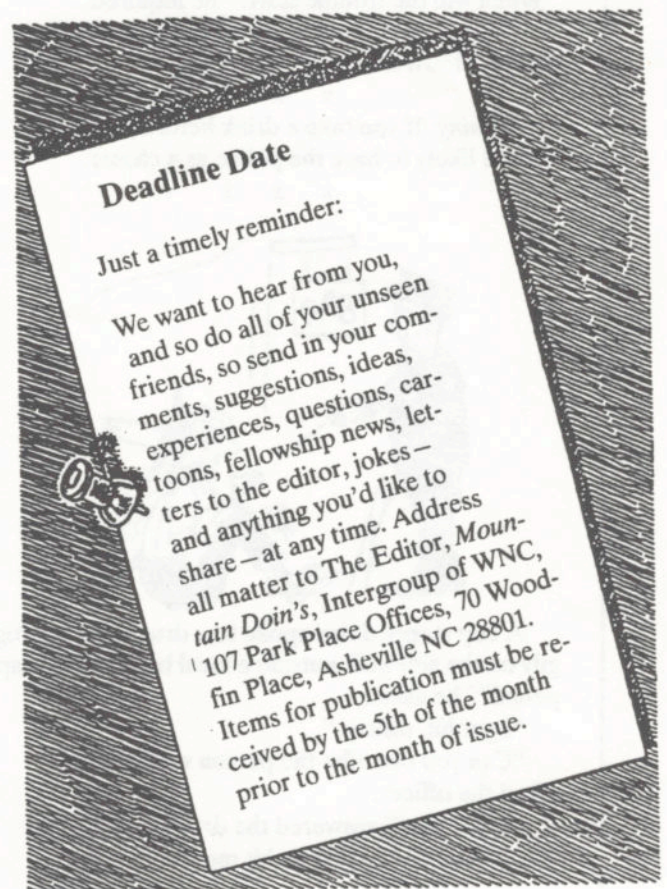 Deadline Date
Just a timely reminder:
We want to hear from you,
and so do all of your unseen
friends, so send in your com-
ments, suggestions, ideas,
experiences, questions, car-
toons, fellowship news, let-
ters to the editor, jokes –
and anything you'd like to
share – at any time. Address
all matter to The Editor, Moun-
tain Doin's, Intergroup of WNC,
107 Park Place Offices, 70 Wood-
fin Place, Asheville NC 28801.
Items for publication must be re-
ceived by the 5th of the month
prior to the month of issue.